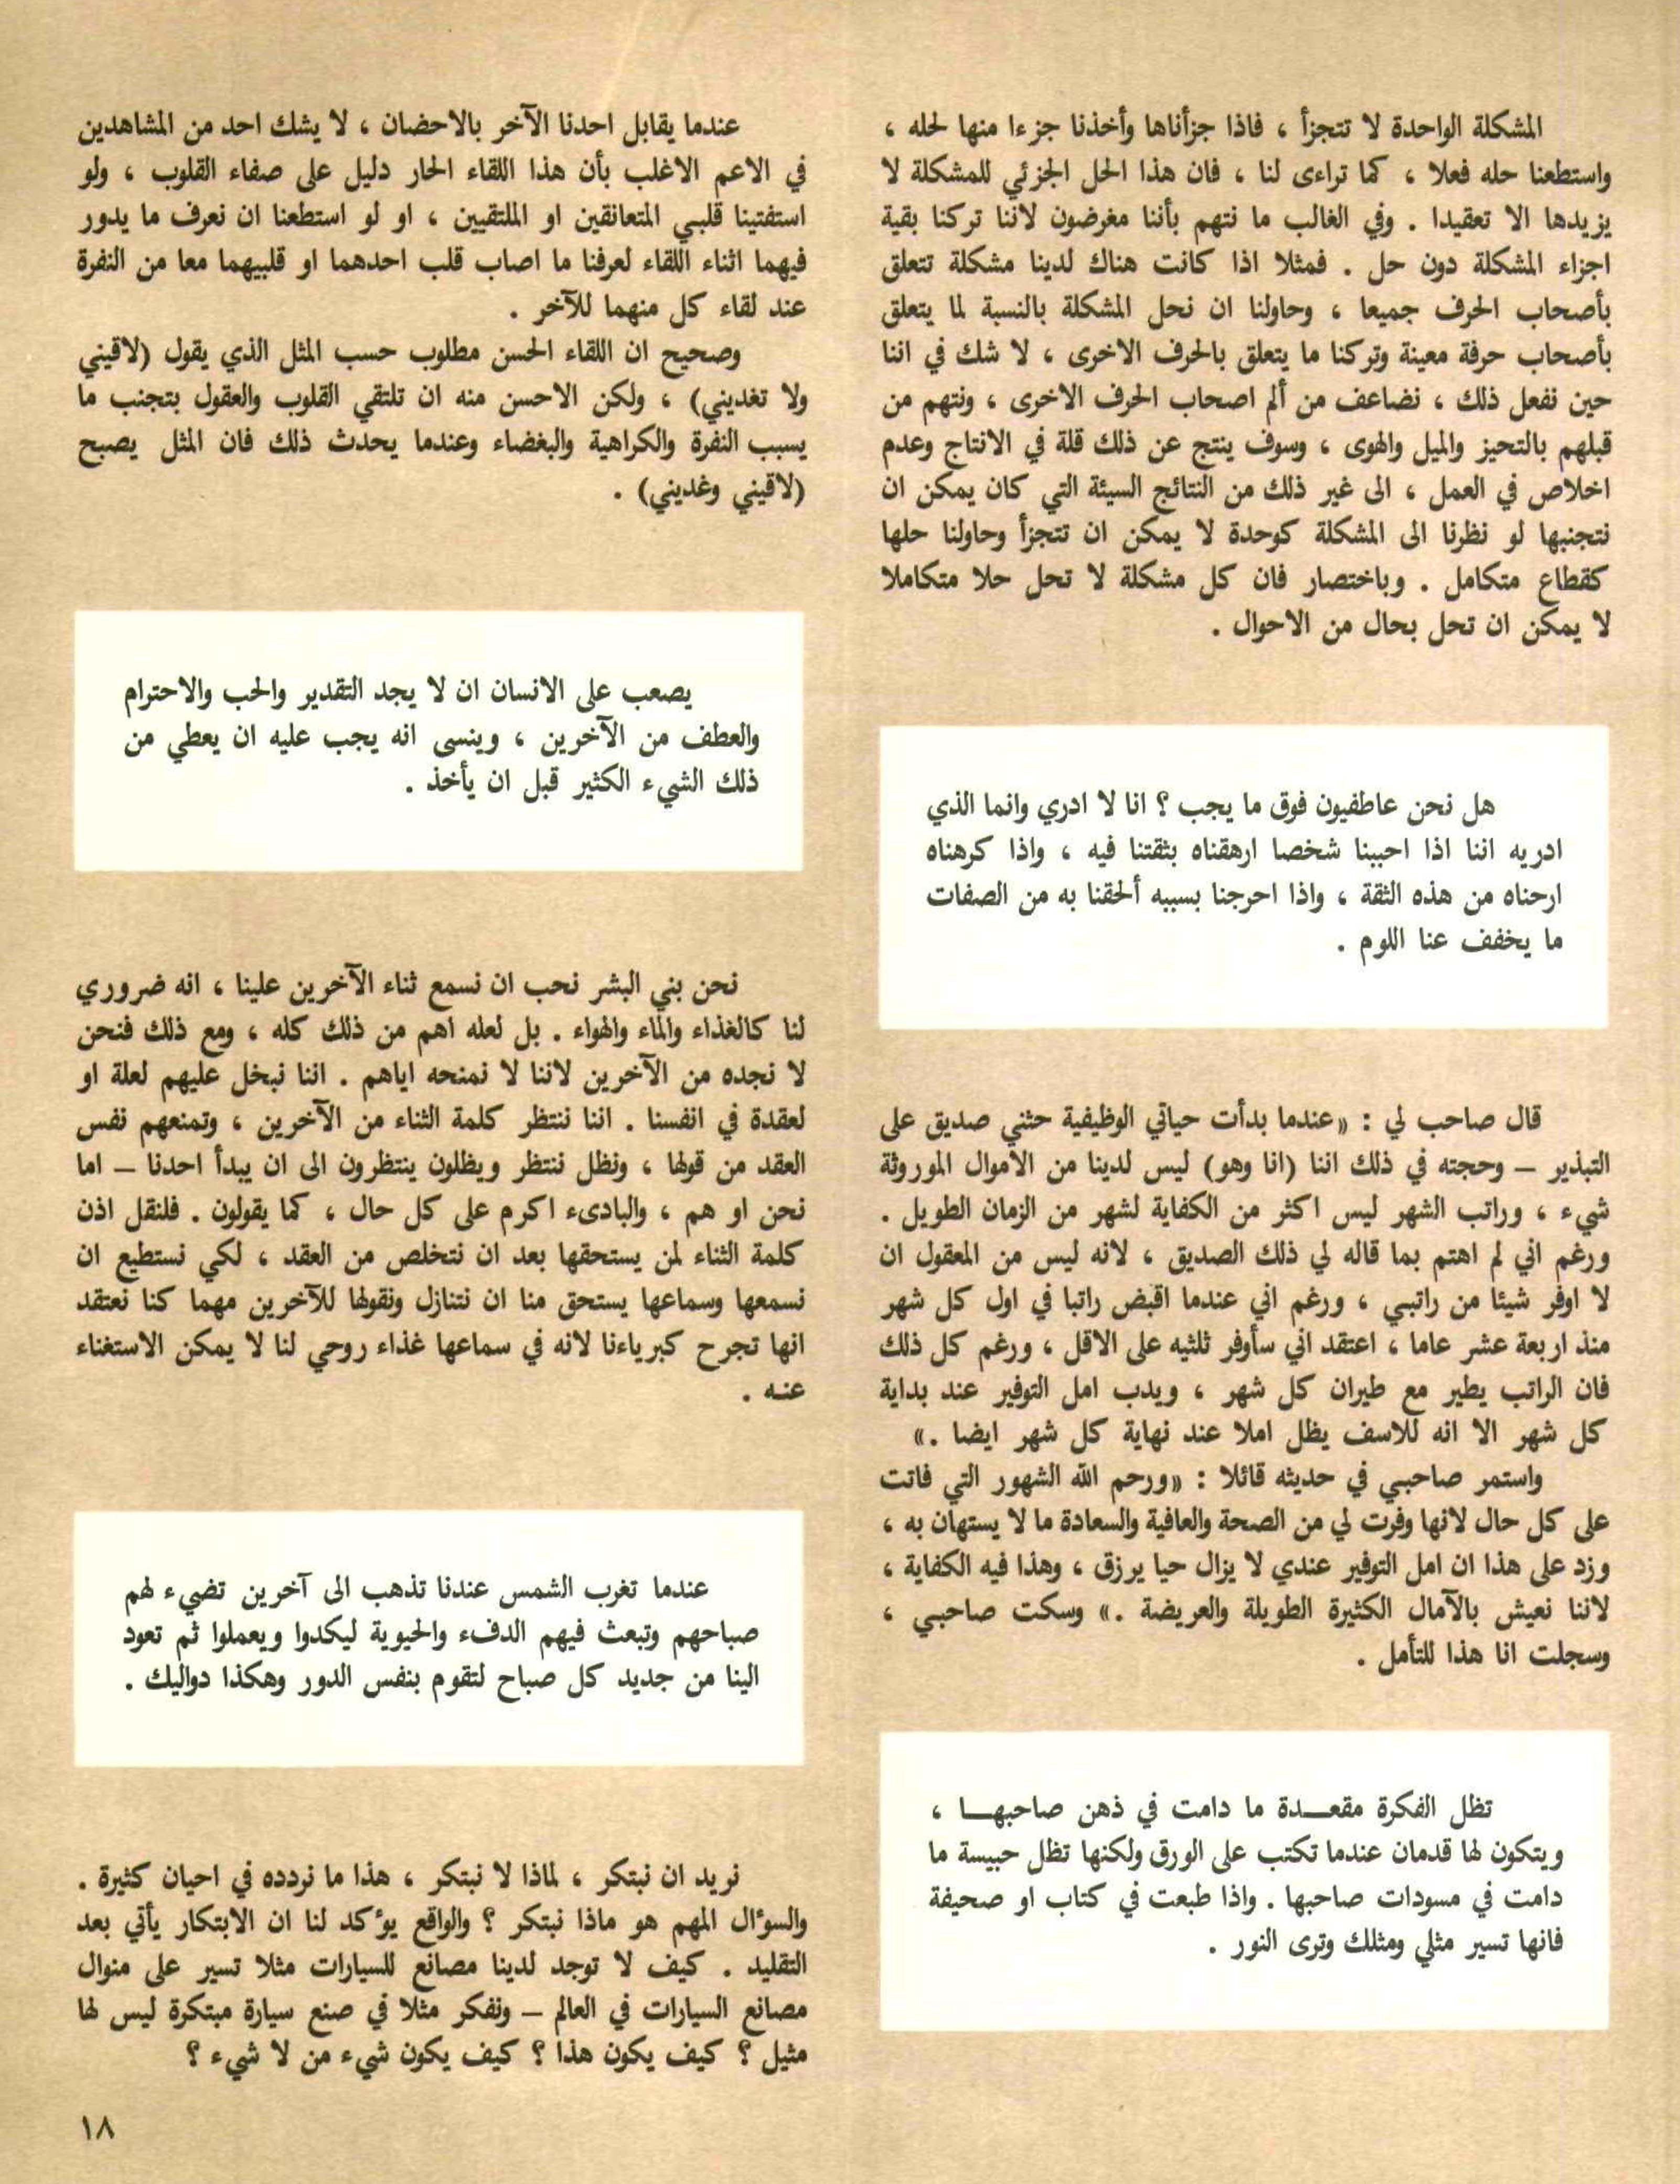 المشكلة الواحدة لا تتجزأ ، فاذا جزأناها وأخذنا جزءا منها لحله ،
واستطعنا حله فعلا ، كما تراءى لنا ، فان هذا الحل الجزئي للمشكلة لا
يزيدها الا تعقيدا . وفي الغالب ما نتهم بأننا مغرضون لاننا تركنا بقية
اجزاء المشكلة دون حل . فمثلا اذا كانت هناك لدينا مشكلة تتعلق
بأصحاب الحرف جميعا ، وحاولنا ان نحل المشكلة بالنسبة لما يتعلق
بأصحاب حرفة معينة وتركنا ما يتعلق بالحرف الاخرى ، لا شك في اننا
حين نفعل ذلك ، نضاعف من ألم اصحاب الحرف الاخرى ، ونتهم من
قبلهم بالتحيز والميل والهوى ، وسوف ينتج عن ذلك قلة في الانتاج وعدم
اخلاص في العمل ، الى غير ذلك من النتائج السيئة التي كان يمكن ان
نتجنبها لو نظرنا الى المشكلة كوحدة لا يمكن ان تتجزأ وحاولنا حلها
كقطاع متكامل . وباختصار فان كل مشكلة لا تحل حلا متكاملا
لا يمكن ان تحل بحال من الاحوال .
هل نحن عاطفيون فوق ما يجب ؟ انا لا ادري وانما الذي
ادريه اننا اذا احببنا شخصا ارهقناه بثقتنا فيه ، واذا كرهناه
ارحناه من هذه الثقة ، واذا احرجنا بسببه ألحقنا به من الصفات
ما يخفف عنا اللوم .
قال صاحب لي : «عندما بدأت حياتي الوظيفية حثني صديق على
التبذير – وحجته في ذلك اننا (انا وهو) ليس لدينا من الأموال الموروثة
شيء ، وراتب الشهر ليس اكثر من الكفاية لشهر من الزمان الطويل .
ورغم اني لم اهتم بما قاله لي ذلك الصديق ، لانه ليس من المعقول ان
لا اوفر شيئا من راتبي ، ورغم اني عندما اقبض راتبا في اول كل شهر
منذ اربعة عشر عاما ، اعتقد اني سأوفر ثلثيه على الاقل ، ورغم كل ذلك
فان الراتب يطير مع طيران كل شهر ، ويدب امل التوفير عند بداية
كل شهر الا انه للاسف يظل املا عند نهاية كل شهر ايضا .»
واستمر صاحبي في حديثه قائلا : «ورحم الله الشهور التي فاتت
على كل حال لانها وفرت لي من الصحة والعافية والسعادة ما لا يستهان به ،
وزد على هذا ان امل التوفير عندي لا يزال حيا يرزق ، وهذا فيه الكفاية ،
لاننا نعيش بالآمال الكثيرة الطويلة والعريضة .» وسكت صاحبي ،
وسجلت انا هذا للتأمل .
تظل الفكرة مقعـــدة ما دامت في ذهن صاحبهـــا ،
ويتكون لها قدمان عندما تكتب على الورق ولكنها تظل حبيسة ما
دامت في مسودات صاحبها . واذا طبعت في كتاب او صحيفة
فانها تسير مثلي ومثلك وترى النور .
عندما يقابل احدنا الآخر بالاحضان ، لا يشك احد من المشاهدين
في الاعم الاغلب بأن هذا اللقاء الحار دليل على صفاء القلوب ، ولو
استفتينا قلبي المتعانقين او الملتقيين ، او لو استطعنا ان نعرف ما يدور
فيهما اثناء اللقاء لعرفنا ما اصاب قلب احدهما او قلبيهما معا من النفرة
عند لقاء كل منهما للآخر .
وصحيح ان اللقاء الحسن مطلوب حسب المثل الذي يقول (لاقيني
ولا تغديني) ، ولكن الاحسن منه ان تلتقي القلوب والعقول بتجنب ما
يسبب النفرة والكراهية والبغضاء وعندما يحدث ذلك فان المثل يصبح
(لاقيني وغديني) .
يصعب على الانسان ان لا يجد التقدير والحب والاحترام
والعطف من الآخرين ، وينسى انه يجب عليه ان يعطي من
ذلك الشيء الكثير قبل ان يأخذ .
نحن بني البشر نحب ان نسمع ثناء الآخرين علينا ، انه ضروري
لنا كالغذاء والماء والهواء . بل لعله اهم من ذلك كله ، ومع ذلك فنحن
لا نجده من الآخرين لاننا لا نمنحه اياهم . اننا نبخل عليهم لعلة او
لعقدة في انفسنا . اننا ننتظر كلمة الثناء من الآخرين ، وتمنعهم نفس
العقد من قولها ، ونظل ننتظر ويظلون ينتظرون الى ان يبدأ احدنا – اما
نحن او هم ، والبادىء اكرم على كل حال ، كما يقولون . فلنقل اذن
كلمة الثناء لمن يستحقها بعد ان نتخلص من العقد ، لكي نستطيع ان
نسمعها وسماعها يستحق منا ان نتنازل ونقولها للآخرين مهما كنا نعتقد
انها تجرح كبرياءنا لانه في سماعها غذاء روحي لنا لا يمكن الاستغناء
عنـه .
عندما تغرب الشمس عندنا تذهب الى آخرين تضيء لهم
صباحهم وتبعث فيهم الدفء والحيوية ليكدوا ويعملوا ثم تعود
الينا من جديد كل صباح لتقوم بنفس الدور وهكذا دواليك .
نريد ان نبتكر ، لماذا لا نبتكر ، هذا ما نردده في احيان كثيرة .
والسؤال المهم هو ماذا نبتكر ؟ والواقع يؤكد لنا ان الابتكار يأتي بعد
التقليد . كيف لا توجد لدينا مصانع للسيارات مثلا تسير على منوال
مصانع السيارات في العالم – ونفكر مثلا في صنع سيارة مبتكرة ليس لها
مثيل ؟ كيف يكون هذا ؟ كيف يكون شيء من لا شيء ؟
١٨